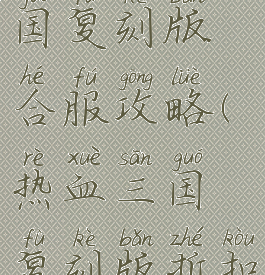 国复刻版
hé fú gōng lüè
合服攻略(
rè xuè sān guó
热血三国
fù kè bǎn zhé kòu
复刻版折扣